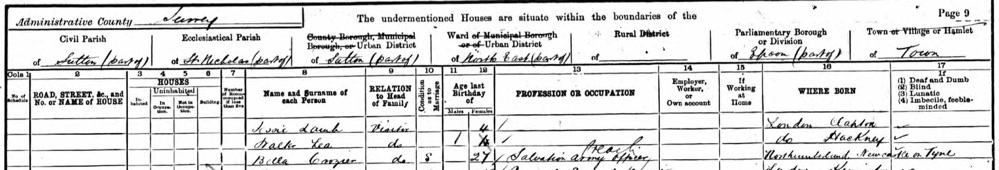 Administrative County Surrey The undermentioned Houses are situate within the boundaries of the Page 9
Civil Parish Ecclesiastical Parish County Borough, Municipal Borough, or Urban District Ward of Municipal Borough or of Urban District Rural District Parliamentary Borough or Division Town or Village or Hamlet
of Sutton (part of) of St Nicholas (part of) of Sutton (part of) of North East (part of) of of Epsom (part of) of Town
Cols 1 2 3 4 5 6 7 8 9 10 11 12 13 14 15 16 17
No. of Schedule ROAD, STREET, &c., and No. or NAME of HOUSE HOUSES Inhabited Uninhabited In Occupation Not in Occupation Building Number of Rooms occupied if less than five Name and Surname of each Person RELATION to Head of Family Condition as to Marriage Age last Birthday of Males Females PROFESSION OR OCCUPATION Employer, Worker, or Own account If Working at Home WHERE BORN (1) Deaf and Dumb (2) Blind (3) Lunatic (4) Imbecile, feeble-minded
Lamb Visitor 4 London Clapton
Lea do 1 do Hackney
Bella Crozier do S 27 Salvation Army Officer Northumberland Newcastle on Tyne